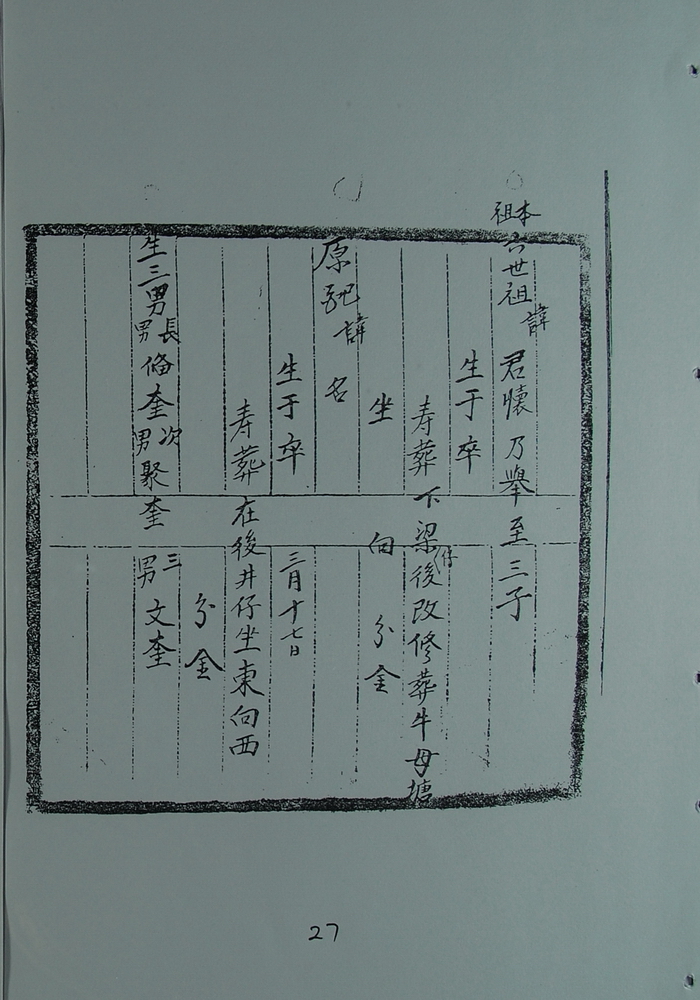 本祖六世祖諱君懷乃舉至三子
生于卒
寿葬下梁仔後改修葬牛母塘
坐向分金
原配諱名
生于卒三月十七日
寿葬在後井仔坐東向西
分金
生三男長男脩奎次男聚奎三男文奎
27